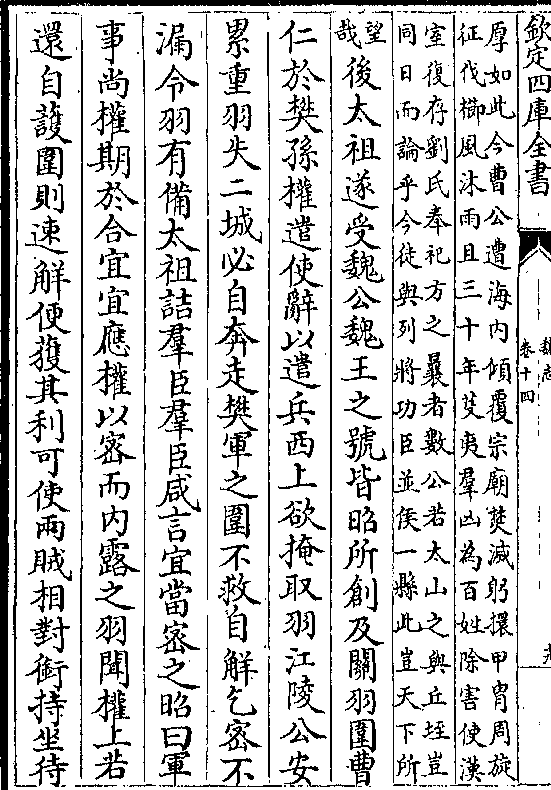 欽定四庫全書
魏志
卷十四
厚如此今曹公遭海内傾覆宗廟焚滅躬擐甲胄周旋
征伐櫛風沐雨且三十年芟夷羣凶為百姓除害使漢
室復存劉氏奉祀方之曩者數公若太山之與丘垤豈
同日而論乎今徒與列將功臣並侯一縣此豈天下所
望
哉
後太祖遂受魏公魏王之號皆昭所創及關羽圍曹
仁於樊孫權遣使辭以遣兵西上欲掩取羽江陵公安
累重羽失二城必自奔走樊軍之圍不救自解乞密不
漏令羽有備太祖詰羣臣羣臣咸言宜當密之昭曰軍
事尚權期於合宜宜應權以密而内露之羽聞權上若
還自護圍則速解便獲其利可使兩賊相對銜持坐待